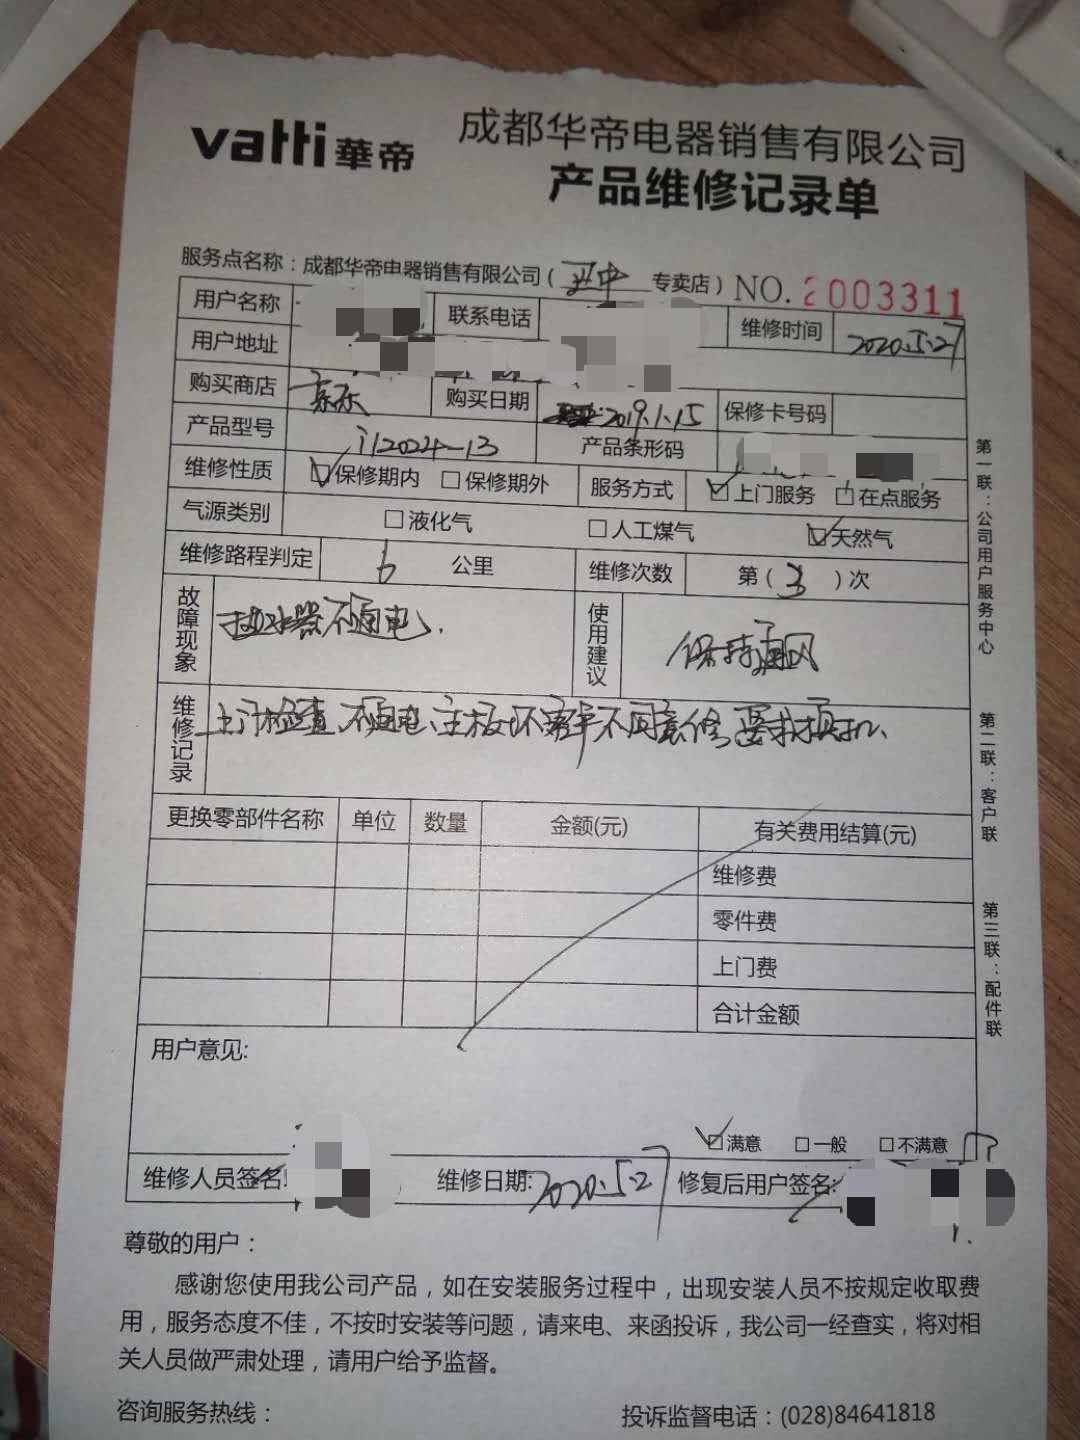 vatti 華帝
成都华帝电器销售有限公司
产品维修记录单
服务点名称：成都华帝电器销售有限公司（ 专卖店） NO. 2003311
用户名称 联系电话 维修时间 2020.5.27
用户地址
购买商店 京东 购买日期 2019.1.15 保修卡号码
产品型号 i12024-13 产品条形码
维修性质 保修期内 保修期外 服务方式 上门服务 在点服务
气源类别 液化气 人工煤气 天然气
维修路程判定 6 公里 维修次数 第（3）次
故障现象 热水器不通电. 使用建议 保持通风
维修记录 上门检查、不通电、主板坏 不同意修,要求换机、
更换零部件名称 单位 数量 金额(元) 有关费用结算(元)
维修费
零件费
上门费
合计金额
用户意见:
满意 一般 不满意
维修人员签名: 维修日期: 2020.5.27 修复后用户签名:
尊敬的用户：
感谢您使用我公司产品，如在安装服务过程中，出现安装人员不按规定收取费
用，服务态度不佳，不按时安装等问题，请来电、来函投诉，我公司一经查实，将对相
关人员做严肃处理，请用户给予监督。
咨询服务热线： 投诉监督电话：(028)84641818
第一联：公司用户服务中心
第二联：客户联
第三联：配件联